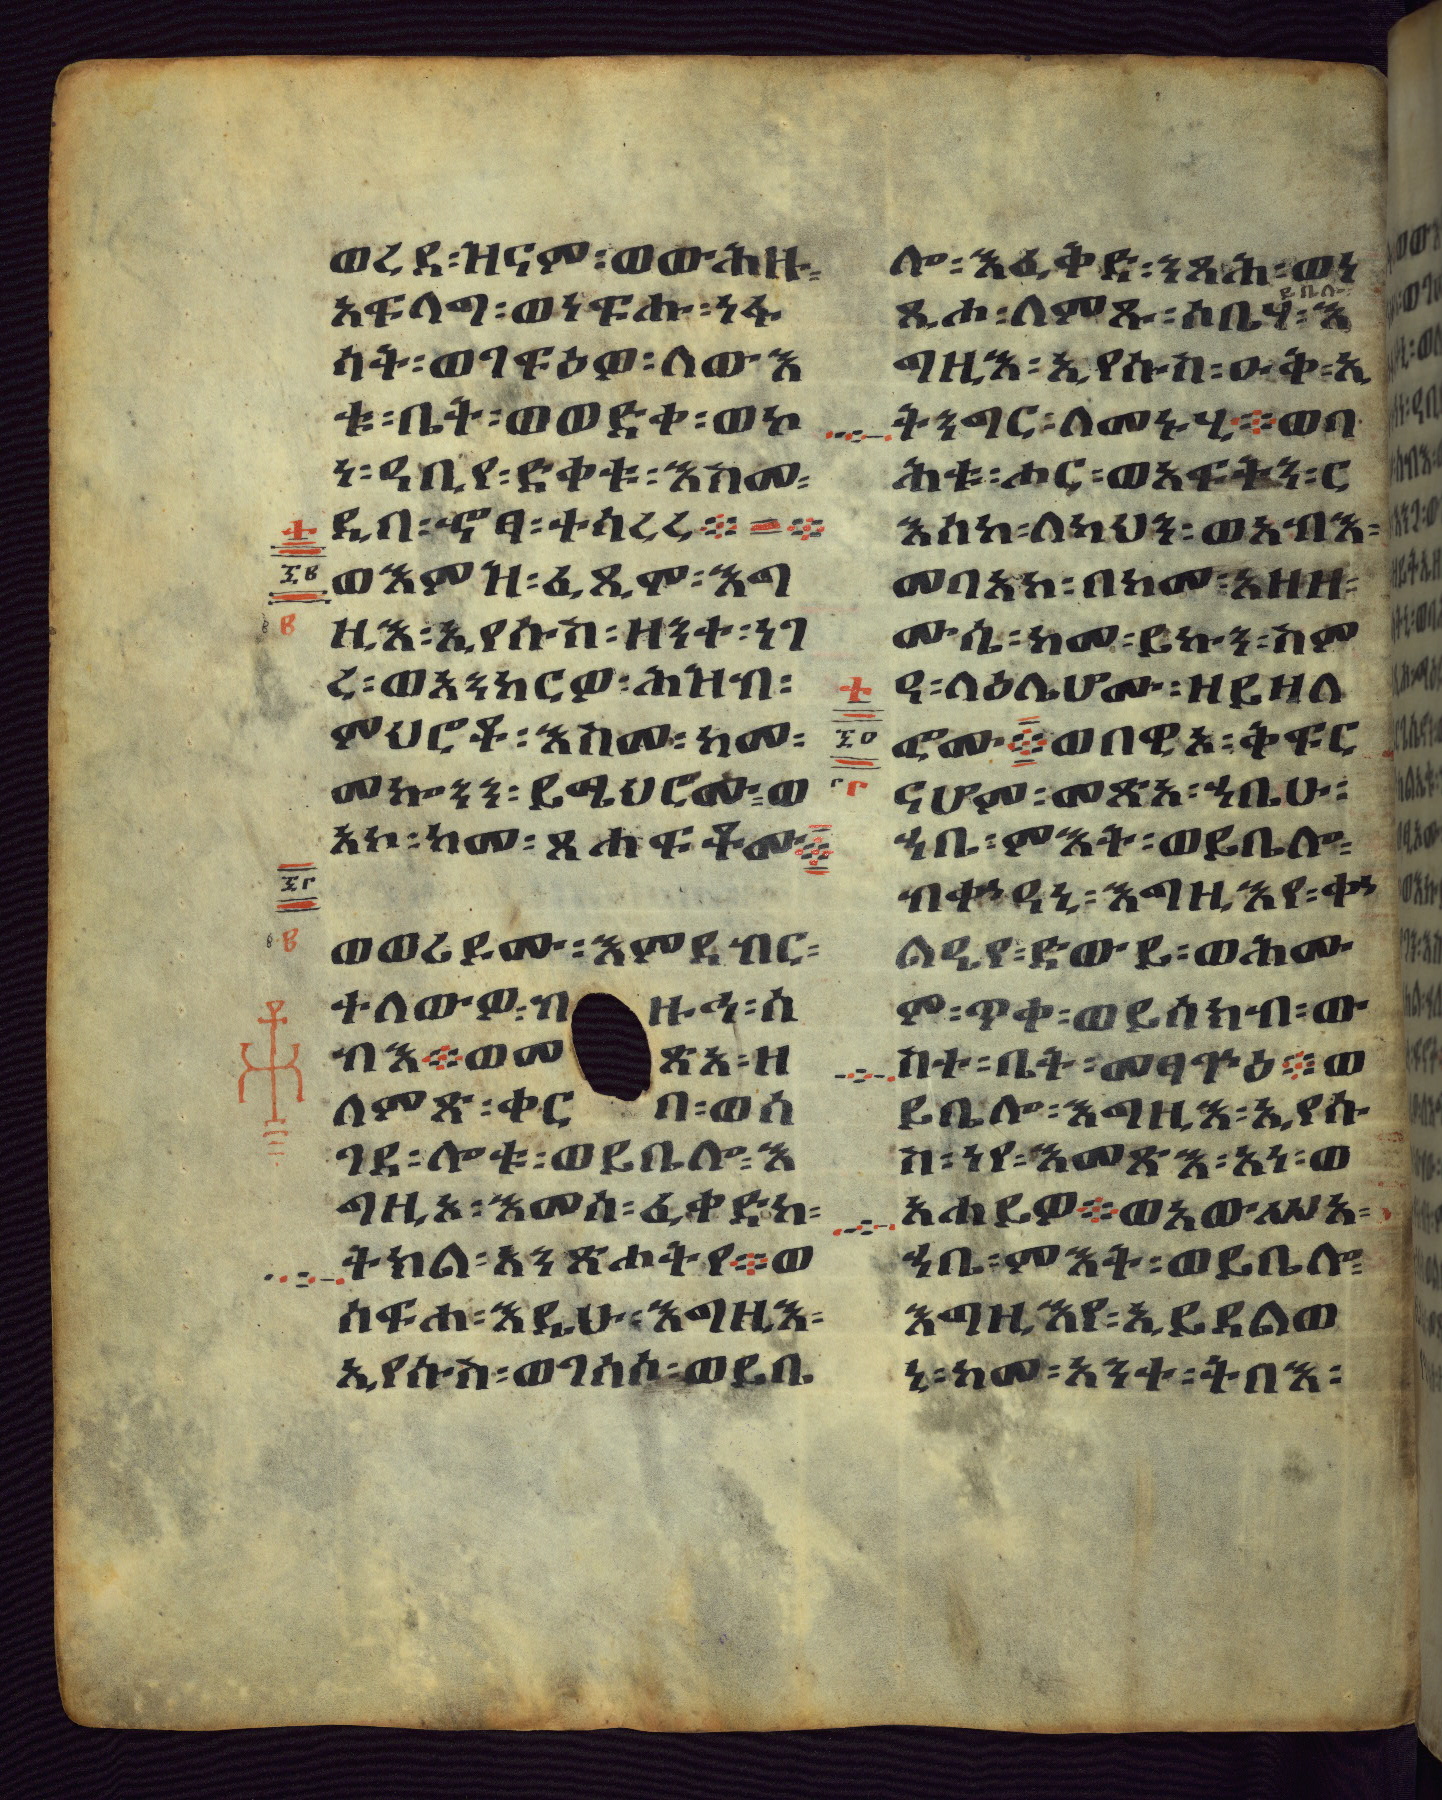 ወረደ፡ዝናም፡ወውሕዙ፡
አፍላግ፡ወነፍሑ፡ነፋ
ሳት፡ወገፍዕዎ፡ለውእ
ቱ፡ቤት፡ወወድቀ፡ወኮ
ነ፡ዓቢየ፡ድቀቱ፡እስመ፡
ዲበ፡ኆፃ፡ተሳረረ፨
፷፪
ወእምዝ፡ፈጺሞ፡እግ
፪
ዚእ፡ኢየሱስ፡ዘንተ፡ነገ
ረ፡ወአንከርዎ፡ሕዝብ፡
ምህሮቶ፡እስመ፡ከመ፡
መኰንን፡ይሜህሮሙ፡ወ
አኮ፡ከመ፡ጸሐፍቶሙ፨
፷፫
፪
ወወሪዶሙ፡እምደብር፡
ተለውዎ፡ብዙኃ፡ሰ
ብእ፨ወመጽአ፡ዘ
ለምጽ፡ቀርበ፡ወሰ
ገደ፡ሎቱ፡ወይቤሎ፡እ
ግዚኦ፡እመሰ፡ፈቀድከ፡
ትክል፡አንጽሖትየ፨ወ
ሰፍሐ፡እዴሁ፡እግዚእ፡
ኢየሱስ፡ወገሰሶ፡ወይቤ
ሎ፡እፈቅድ፡ንጻሕ፡ወነ
ይቤሎ፡
ጺሖ፡ለምጹ፡ሶቤሃ፡እ
ግዚእ፡ኢየሱስ፡ዑቅ፡ኢ
ትንግር፡ለመኑሂ፨ወባ
ሕቱ፡ሑር፡ወአፍትን፡ር
እሰከ፡ለካህን፡ወአብእ፡
መባአከ፡በከመ፡አዘዘ፡
ሙሴ፡ከመ፡ይኩን፡ስም
ዓ፡ላዕሌሆሙ፡ዘይዘለ
፷፬
ፎሙ፨ወበዊኦ፡ቅፍር
፫
ናሆም፡መጽአ፡ኀቤሁ፡
ኀቤ፡ምእት፡ወይቤሎ፡
ብቍዓኒ፡እግዚእየ፡ቍ
ልዔየ፡ድውይ፡ወሕሙ
ም፡ጥቀ፡ወይሰክብ፡ው
ስተ፡ቤት፡መፃጕዕ፨ወ
ይቤሎ፡እግዚእ፡ኢየሱ
ስ፡ነየ፡እመጽእ፡አነ፡ወ
አሐይዎ፨ወአውሥአ፡
ኀቤ፡ምእት፡ወይቤሎ፡
እግዚእየ፡ኢይደልወ
ኒ፡ከመ፡አንተ፡ትባእ፡